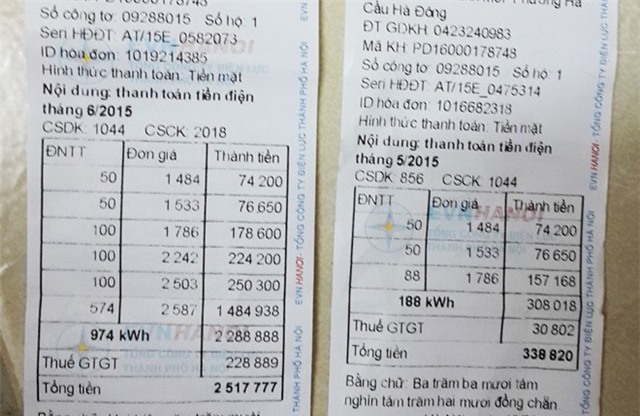 Số công tơ: 09288015 Số hộ: 1
Seri HĐĐT: AT/15E_0582073
ID hóa đơn: 1019214385
Hình thức thanh toán: Tiền mặt
Nội dung: thanh toán tiền điện
tháng 6/2015
CSDK: 1044 CSCK: 2018
ĐNTT Đơn giá Thành tiền
50 1 484 74 200
50 1 533 76 650
100 1 786 178 600
100 2 242 224 200
100 2 503 250 300
574 2 587 1 484 938
974 kWh 2 288 888
Thuế GTGT 228 889
Tổng tiền 2 517 777
EVN HANOI - TỔNG CÔNG TY ĐIỆN LỰC THÀNH PHỐ HÀ NỘI
Cầu Hà Đông
ĐT GDKH: 0423240983
Mã KH: PD16000178748
Số công tơ: 09288015 Số hộ: 1
Seri HĐĐT: AT/15E_0475314
ID hóa đơn: 1016682318
Hình thức thanh toán: Tiền mặt
Nội dung: thanh toán tiền điện
tháng 5/2015
CSDK: 856 CSCK: 1044
ĐNTT Đơn giá Thành tiền
50 1 484 74 200
50 1 533 76 650
88 1 786 157 168
188 kWh 308 018
Thuế GTGT 30 802
Tổng tiền 338 820
Bằng chữ: Ba trăm ba mươi tám
nghìn tám trăm hai mươi đồng chẵn
EVN HANOI - TỔNG CÔNG TY ĐIỆN LỰC THÀNH PHỐ HÀ NỘI